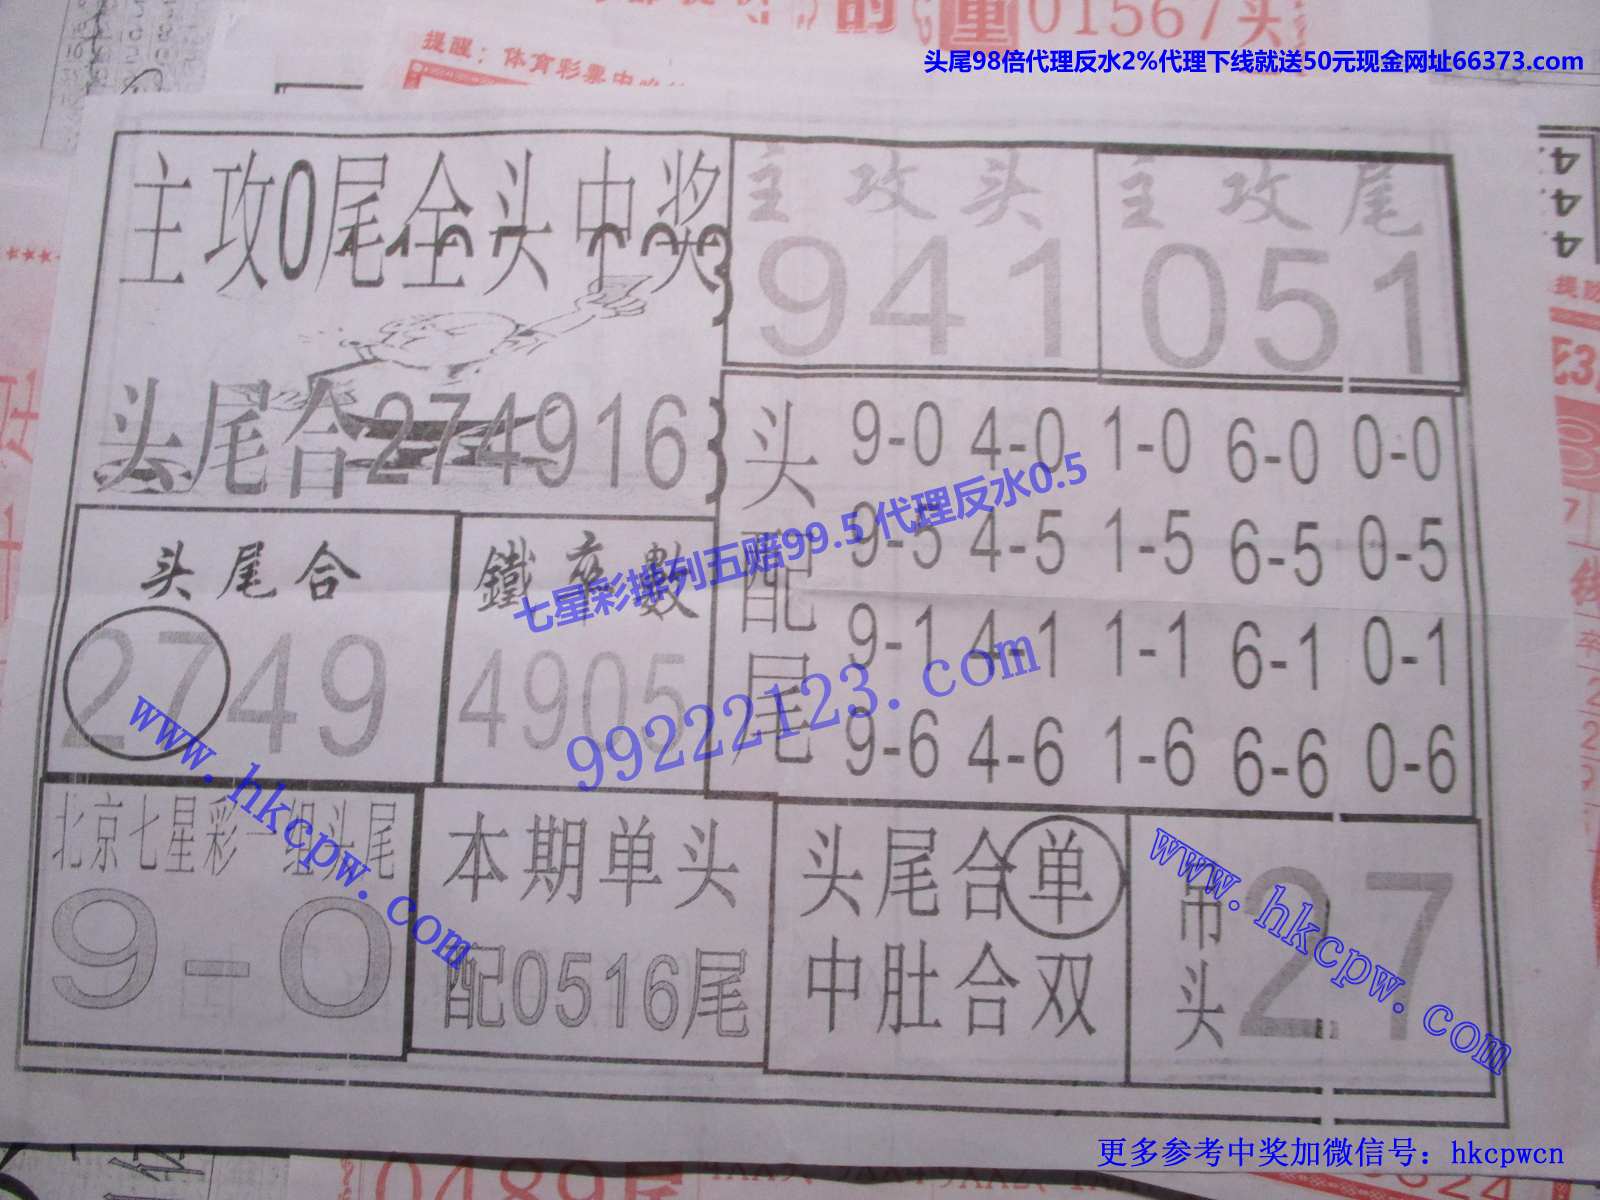 01567头
头尾98倍代理反水2%代理下线就送50元现金网址66373.com
提醒：体育彩票中晚
主攻0尾全头中奖
主攻头
941
主攻尾
051
头尾合274916
头配尾
9-0 4-0 1-0 6-0 0-0
9-5 4-5 1-5 6-5 0-5
9-1 4-1 1-1 6-1 0-1
9-6 4-6 1-6 6-6 0-6
七星彩排列五赔99.5 代理反水0.5
头尾合
2749
鐵率數
4905
99222123.com
www.hkcpw.com
北京七星彩一组头尾
9-0
本期单头
配0516尾
头尾合单
中肚合双
吊头
27
www.hkcpw.com
更多参考中奖加微信号：hkcpwcn
0489尾